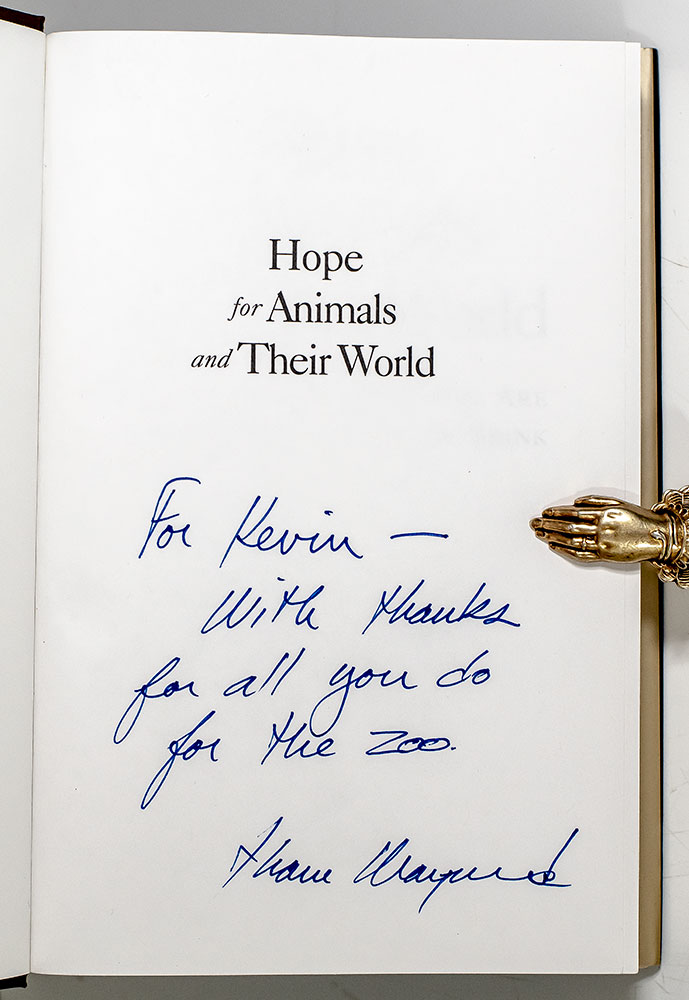 Hope
for Animals
and Their World
For Kevin —
With thanks
for all you do
for the zoo.
Thane Maynard